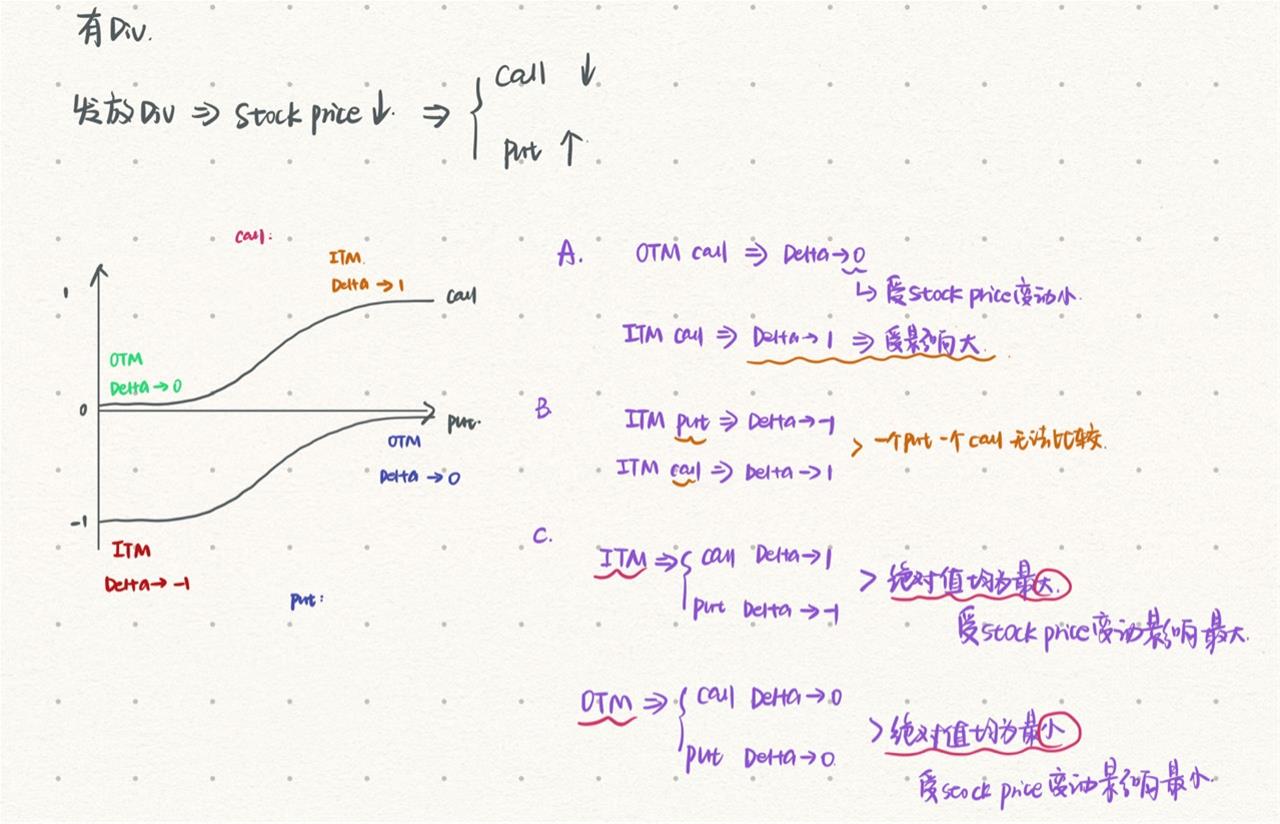 有Div.
发放Div ⇒ Stock price ↓. ⇒ { Call ↓
put ↑
Call:
ITM.
Delta → 1
1
Call
OTM
Delta → 0
0
put.
OTM
Delta → 0
-1
ITM
Delta → -1
put:
A. OTM call ⇒ Delta → 0
↳ 受stock price变动小.
ITM call ⇒ Delta → 1 ⇒ 受影响大.
B. ITM put ⇒ Delta → -1
ITM call ⇒ Delta → 1
> 一个put 一个call 无法比较.
C. ITM ⇒ { call Delta → 1
put Delta → -1
> 绝对值均为最大.
受stock price变动影响最大.
OTM ⇒ { call Delta → 0
put Delta → 0.
> 绝对值均为最小
受stock price变动影响最小.